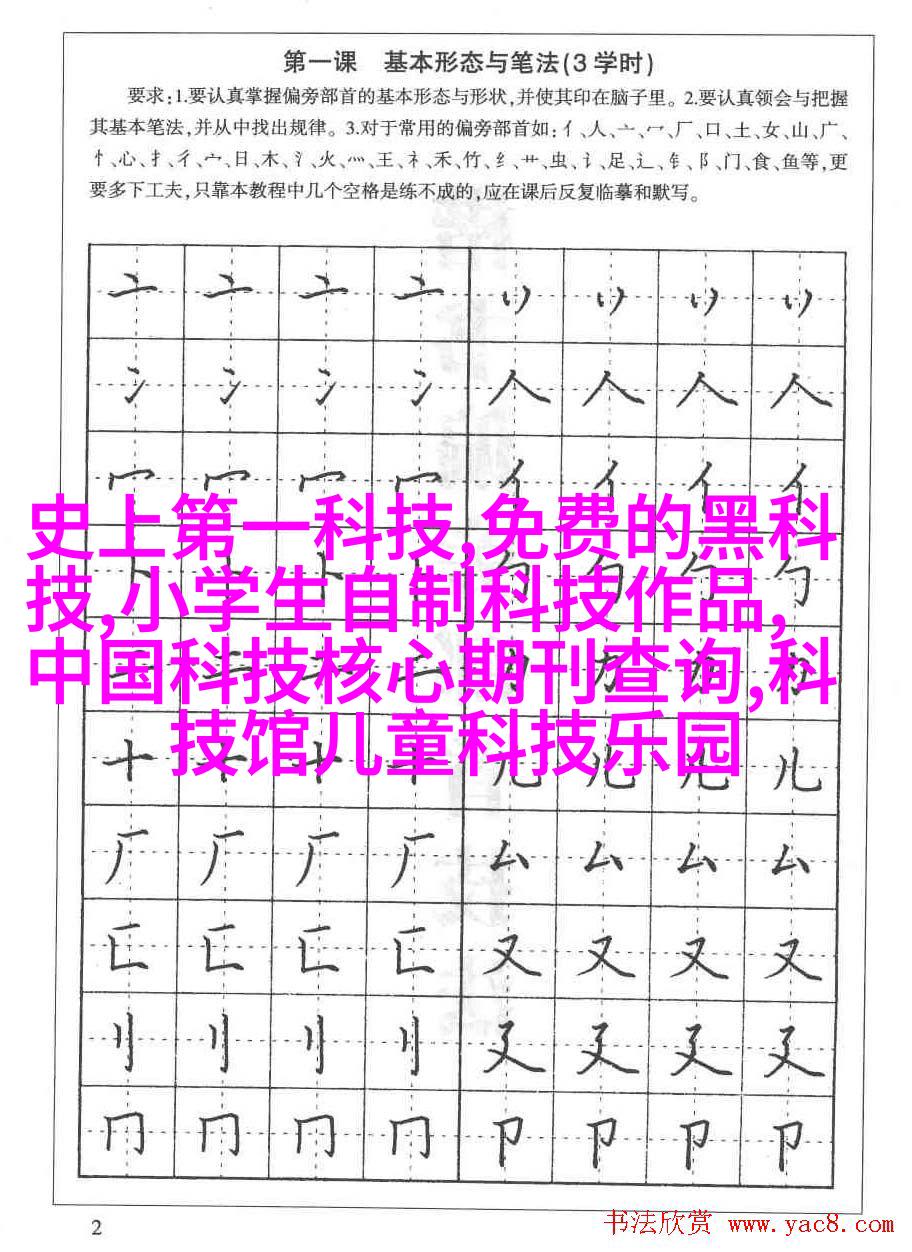 第一课　基本形态与笔法(3学时)
要求:1.要认真掌握偏旁部首的基本形态与形状,并使其印在脑子里。2.要认真领会与把握
其基本笔法,并从中找出规律。3.对于常用的偏旁部首如:亻、人、亠、冖、厂、口、土、女、山、广、
忄、心、扌、彳、宀、日、木、氵、火、灬、王、礻、禾、竹、纟、艹、虫、讠、足、辶、钅、阝、门、食、鱼等,更
要多下工夫,只靠本教程中几个空格是练不成的,应在课后反复临摹和默写。
亠 亠 亠 亠 丷 丷 丷 丷
冫 冫 冫 冫 人 人 人 人
冖 冖 冖 冖 亻 亻 亻 亻
史上第一科技,免费的黑科
技,小学生自制科技作品,
中国科技核心期刊查询,科
技馆儿童科技乐园
十 十 十 十 儿 儿 儿 儿
厂 厂 厂 厂 厶 厶 厶 厶
匚 匚 匚 匚 又 又 又 又
刂 刂 刂 刂 廴 廴 廴 廴
冂 冂 冂 冂 卩 卩 卩 卩
2
书法欣赏 www.yac8.com